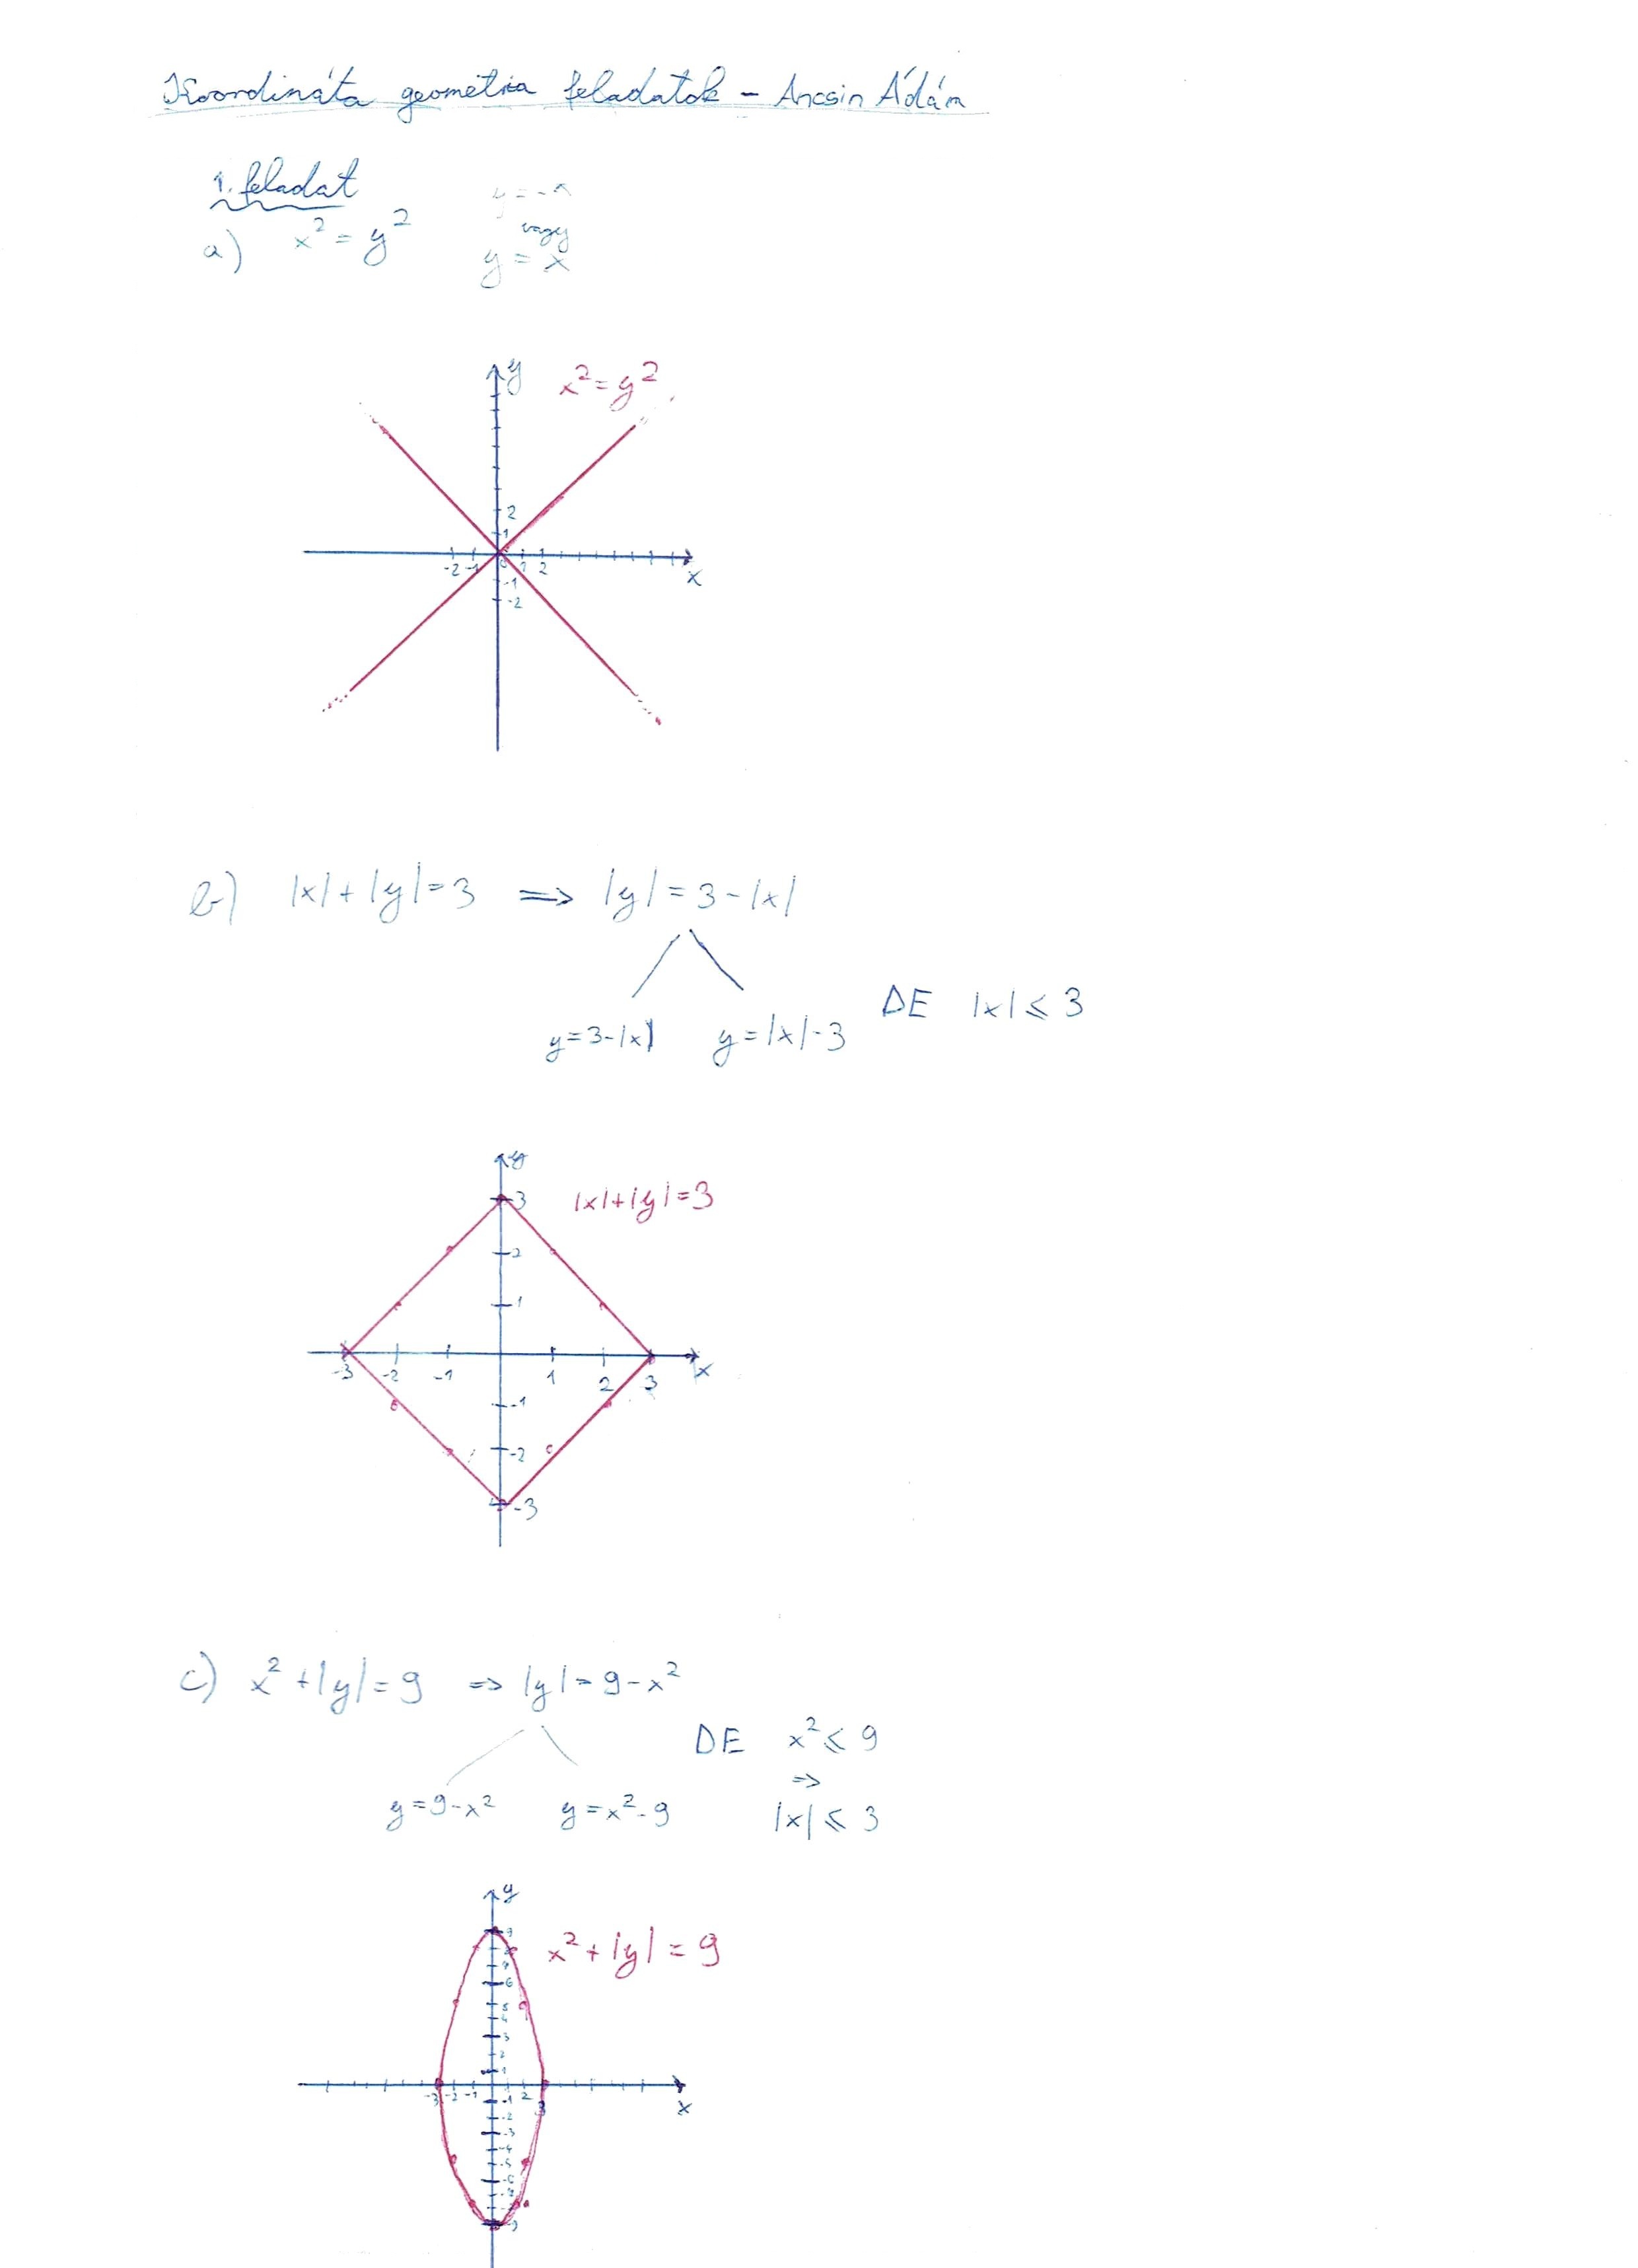 Koordináta geometria feladatok - Ancsin Ádám
1. feladat
a) x² = y²
y = -x
vagy
y = x
y
x² = y²
2
1
-2 -1 0 1 2
x
-1
-2
b) |x| + |y| = 3 => |y| = 3 - |x|
y = 3 - |x| y = |x| - 3 DE |x| ≤ 3
y
3 |x| + |y| = 3
2
1
-3 -2 -1 1 2 3 x
-1
-2
-3
c) x² + |y| = 9 => |y| = 9 - x²
DE x² ≤ 9
=>
y = 9 - x² y = x² - 9 |x| ≤ 3
y
9
x² + |y| = 9
8
7
6
5
4
3
2
1
-3 -2 -1 2 3
x
-1
-2
-3
-4
-5
-6
-7
-9